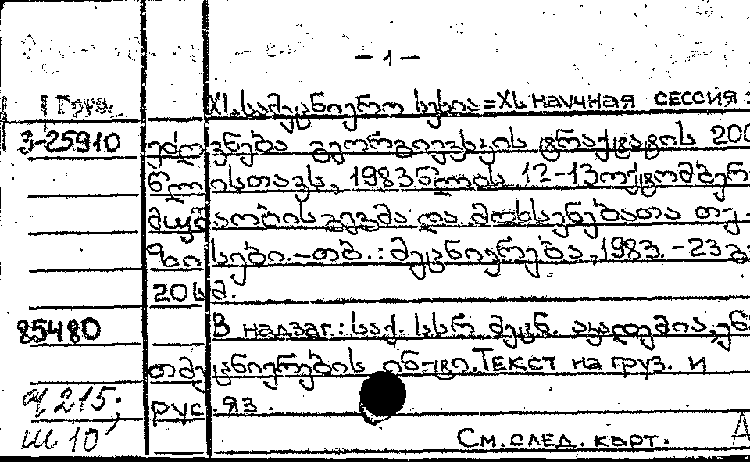 — 1 —
1 Груз. XI. სამეცნიერო სესია = XI. научная сессия :
3-25910 ეძღვნება გეორგიევსკის ტრაქტატის 200
წლისთავს, 1983 წლის 12-13 ოქტომბერი
მუშაობის გეგმა და მოხსენებათა თე-
ზისები. - თბ. : მეცნიერება, 1983. - 23 გ
20 სმ.
85480 В надзаг.: საქ. სსრ მეცნ. აკადემია, ენ
ათმეცნიერების ინ-ტი. Текст на груз. и
q 215; рус. яз.
ш 10 См. след. карт.